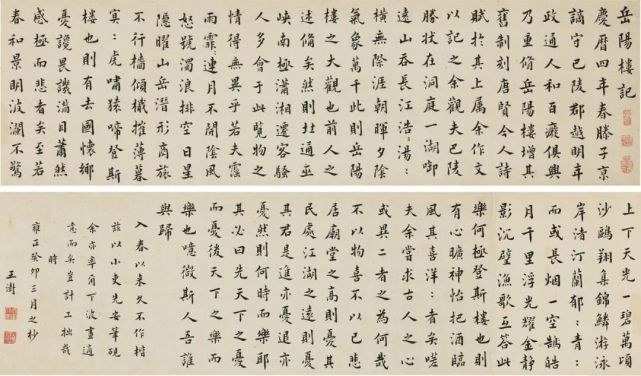 岳陽樓記
慶曆四年春滕子京
謫守巴陵郡越明年
政通人和百癈俱興
乃重脩岳陽樓增其
舊制刻唐賢今人詩
賦於其上屬余作文
以記之余觀夫巴陵
勝狀在洞庭一湖啣
遠山吞長江浩〻湯〻
橫無際涯朝暉夕陰
氣象萬千此則岳陽
樓之大觀也前人之
述備矣然則北通巫
峽南極瀟湘遷客騷
人多會于此覽物之
情得無異乎若夫霪
雨霏〻連月不開陰風
怒號濁浪排空日星
隱曜山岳潛形商旅
不行檣傾檝摧薄暮
冥〻虎嘯猿啼登斯
樓也則有去國懷鄉
憂讒畏譏滿目蕭然
感極而悲者矣至若
春和景明波瀾不驚
上下天光一碧萬頃
沙鷗翔集錦鱗游泳
岸渚汀蘭郁〻青〻
而或長烟一空皓
月千里浮光耀金靜
影沉璧漁歌互答此
樂何極登斯樓也則
有心曠神怡把酒臨
風其喜洋〻者矣嗟
夫余嘗求古人之心
或異二者之為何哉
不以物喜不以己悲
居廟堂之高則憂其
民處江湖之遠則憂
其君是進亦憂退亦
憂然則何時而樂耶
其必曰先天下之憂
而憂後天下之樂而
樂也噫微斯人吾誰
與歸
入春以來久不作楷
茲以小吏先安筆硯
余亦率爾下波畫適
意而矣豈計工拙哉
時
雍正癸卯三月之杪
王澍